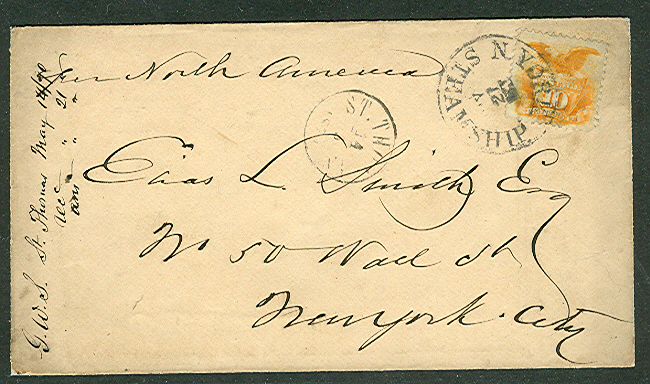 Per North America
N. YORK STEAMSHIP
21
10
ST. TH
14
Elias L. Smith Esq
No 50 Wall St
New York City
G. W. S. St. Thomas May 14/70
rec " 21 "
ans " "